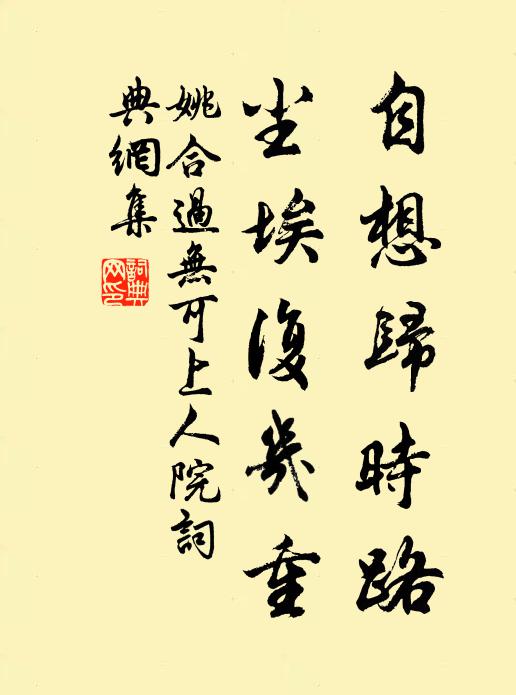 自想歸時路
尘埃復幾重
姚合過無可上人院詞
典網集
詞典網印